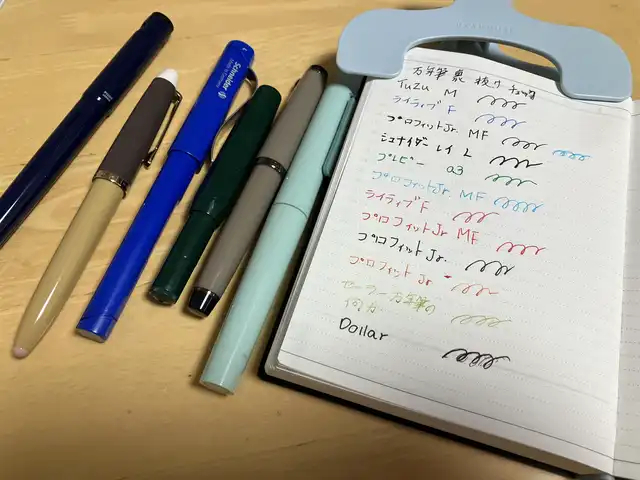 Schneider
万年筆 裏抜けチェック
TUZU M
ライティブ F
プロフィットJr. MF
シュナイダー レイ L
プレピー 03
プロフィットJr. MF
ライティブ F
プロフィットJr MF
プロフィット Jr.
プロフィット Jr
セーラー 万年筆の
何か
Dollar